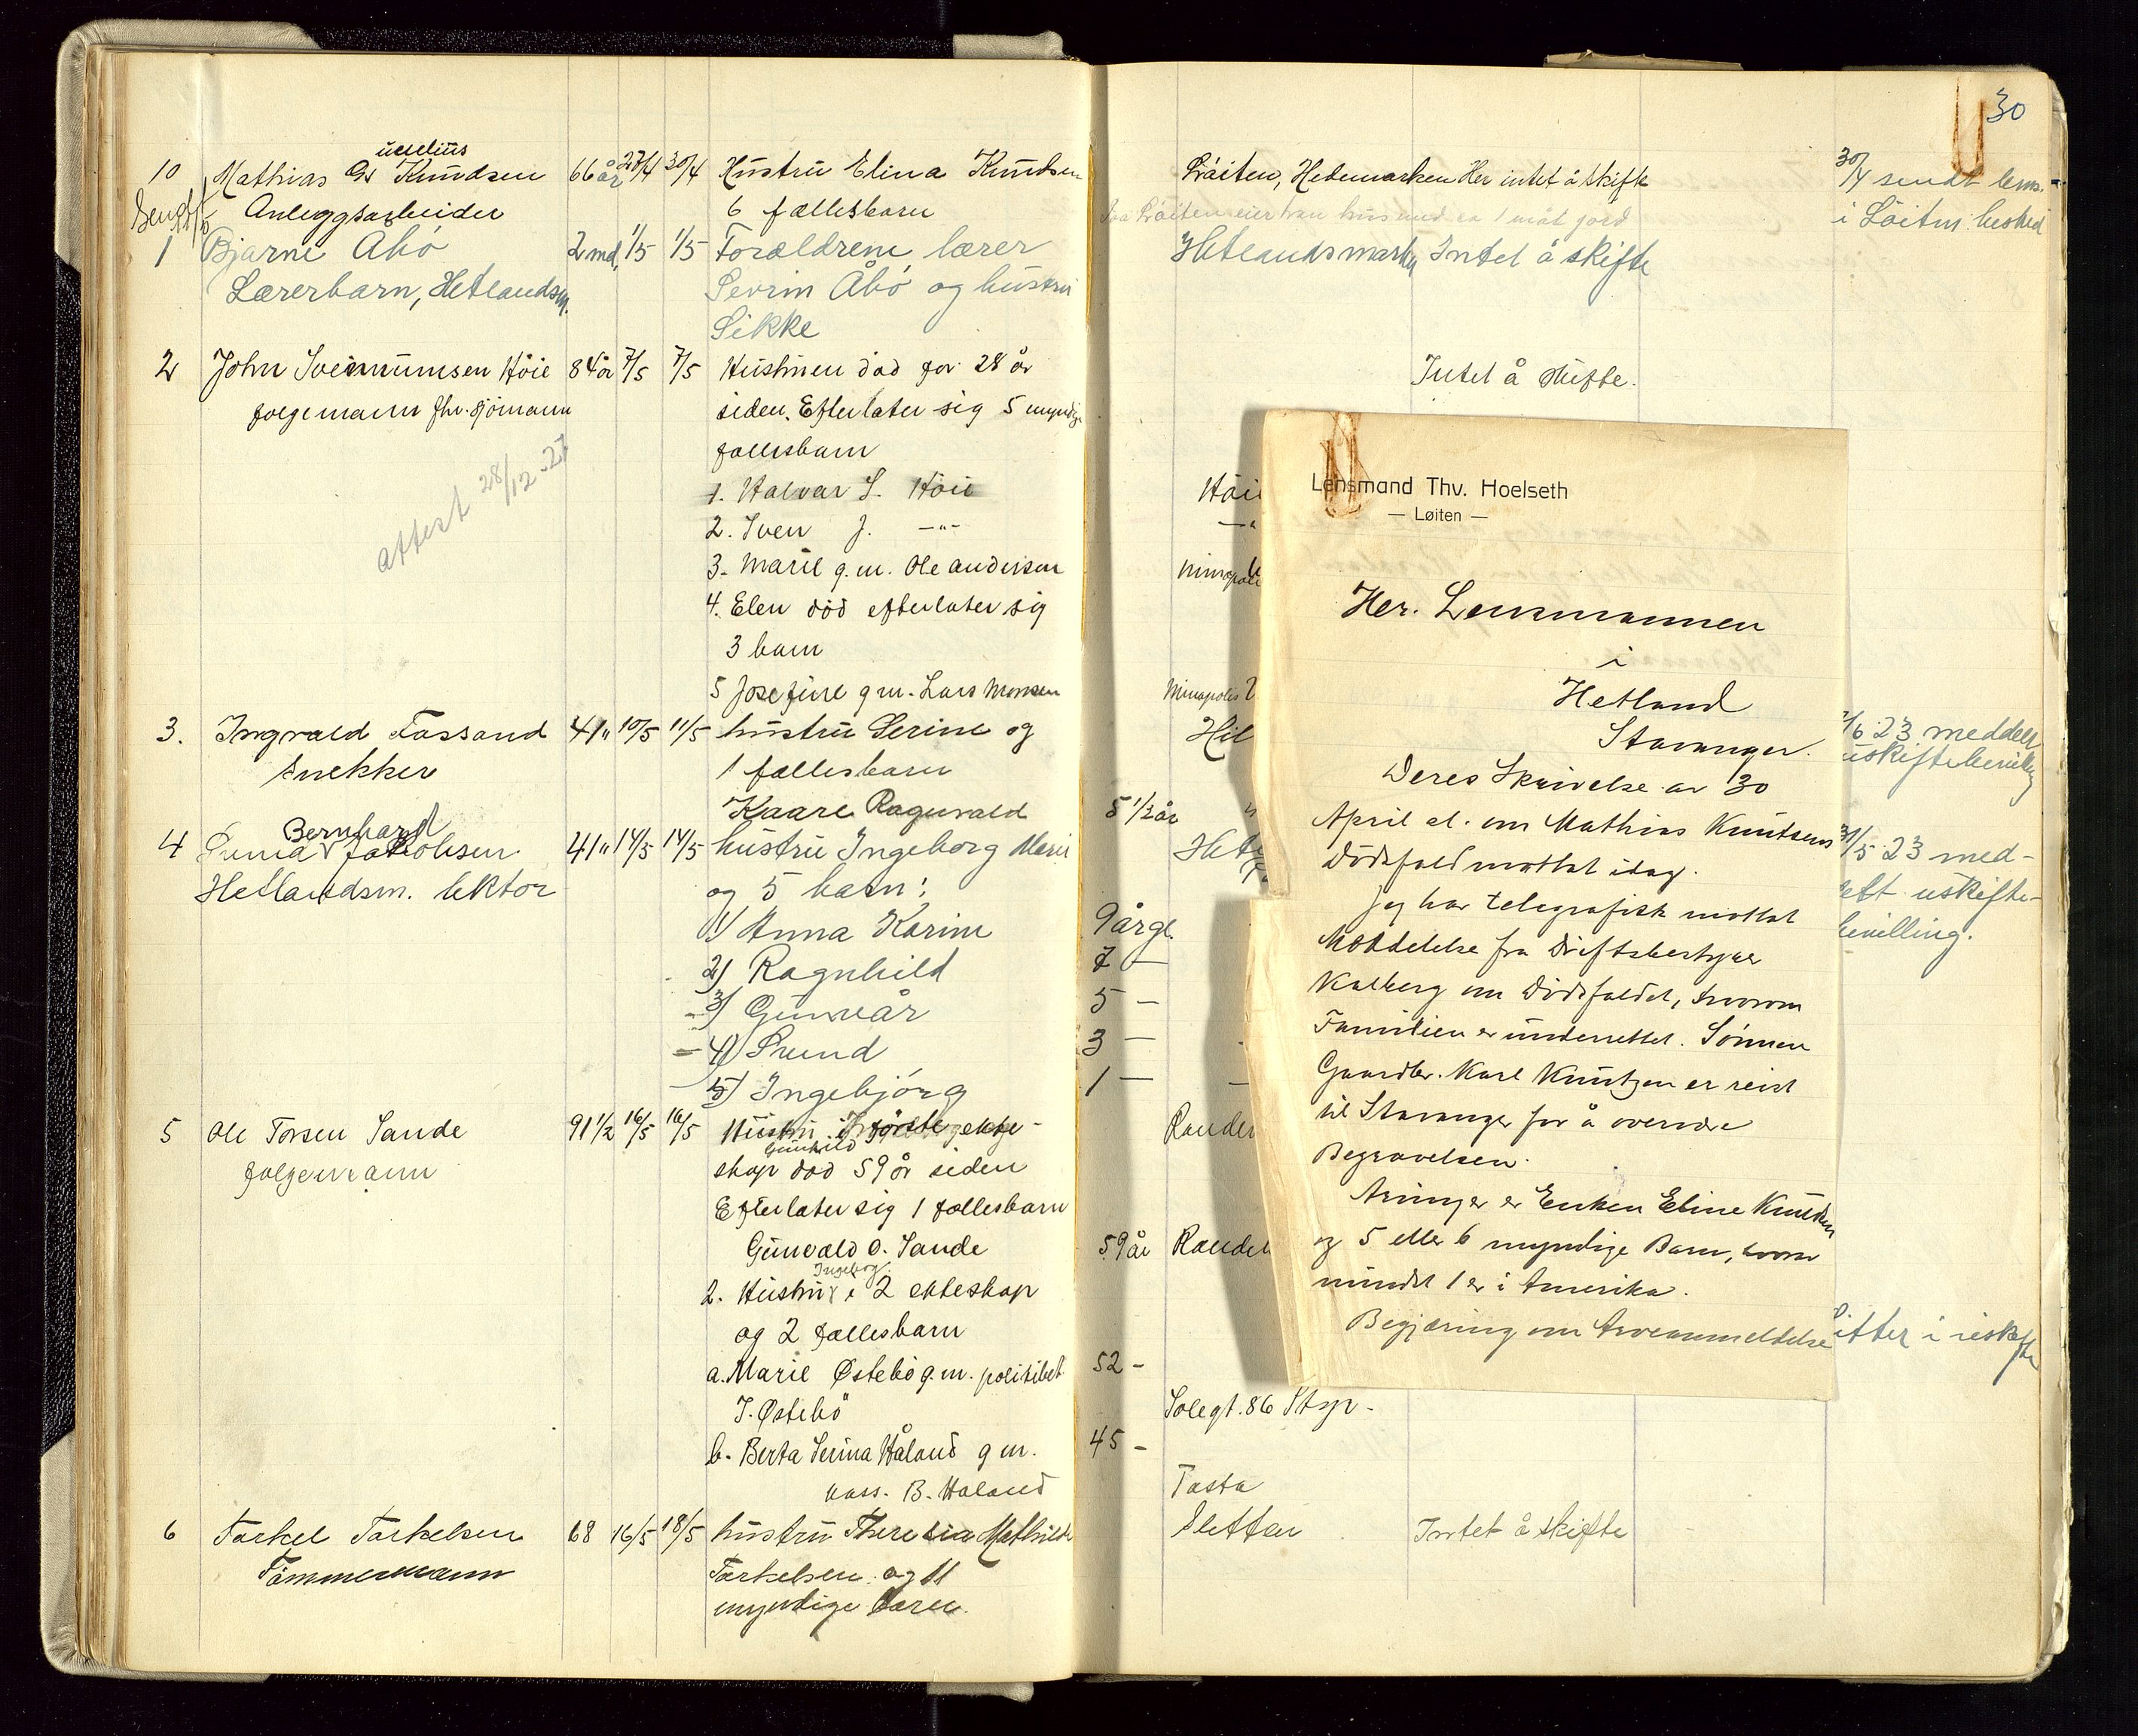 30
10 Mathias Knudsen 66 år 27/4 30/4 Hustru Elina Knudsen
Anleggsarbeider 6 fællesbarn
Løiten, Hedemarken Her intet å skifte
30/4 sendt lensm.
i Løiten besked
1 Bjarne Åbø 2 md. 1/5 1/5 Forældrene lærer
Lærerbarn, Hetlandsm. Sevrin Åbø og hustru
Sikke
Hetlandsmarka Intet å skifte
2 John Høie 84 år 7/5 7/5 Hustruen død for 28 år
folgemann fhv. sjømann siden. Efterlater sig 5 myndige
fællesbarn
Intet å skifte.
attest 28/12-27
1. Halvar S. Høie
2. Sven J. -"-
3. Marie g.m. Ole Andersen
4. Elen död efterlater sig
3 barn
5 Josefine g m. Lars Monsen
Minapolis
3. Ingvald Tassand 41 " 10/5 11/5 hustru Serine og
Snekker 1 fællesbarn
Kaare Ragnvald 5 1/2 år
6 23 meddelt
uskiftebevilling
Bernhard
4 Jakobsen 41 " 14/5 14/5 hustru Ingeborg Marie
Hetlandsm. lektor og 5 barn:
1) Anna Karine 9 år gl.
2) Ragnhild 7 —
3) Gunvår 5 —
4) Svend 3 —
5) Ingebjørg 1 —
31/5 23 med-
delt uskifte-
bevilling.
5 Ole Torsen Sande 91 1/2 16/5 16/5 Hustru i første ekte-
Gunhild
folgemann skap død 59 år siden
Efterlater sig 1 fællesbarn
Gunvald O. Sande 59 år
Ingeborg
2. Hustru i 2 ekteskap
og 2 fællesbarn
a. Marie Østebø g.m. politibet. 52 -
T. Østebø
Solegt. 86 Stgr.
b. Berta Serina Håland g m. 45 -
kass. B. Håland
Tasta
Sitter i uskifte
6 Torkel Torkelsen 68 16/5 18/5 hustru Theresia Mathilde
Tømmermann Torkelsen og 11
myndige barn.
Slettan Intet å skifte
Lensmand Thv. Hoelseth
— Løiten —
Her. Lensmannen
i
Hetland
Stavanger.
Deres Skrivelse av 30
April d. om Mathias Knutsens
Dødsfald mottat idag.
Jeg har telegrafisk mottat
Meddelelse fra Driftsbestyrer
Kalberg om Dødsfaldet, hvorom
Familien er underrettet. Sønnen
Gaardbr. Karl Knutzen er reist
til Stavanger for å overvære
Begravelsen.
Arvinger er Enken Eline Knudsen
og 5 eller 6 myndige Barn, hvorav
mindst 1 er i Amerika.
Begjæring om Arveanmeldelse